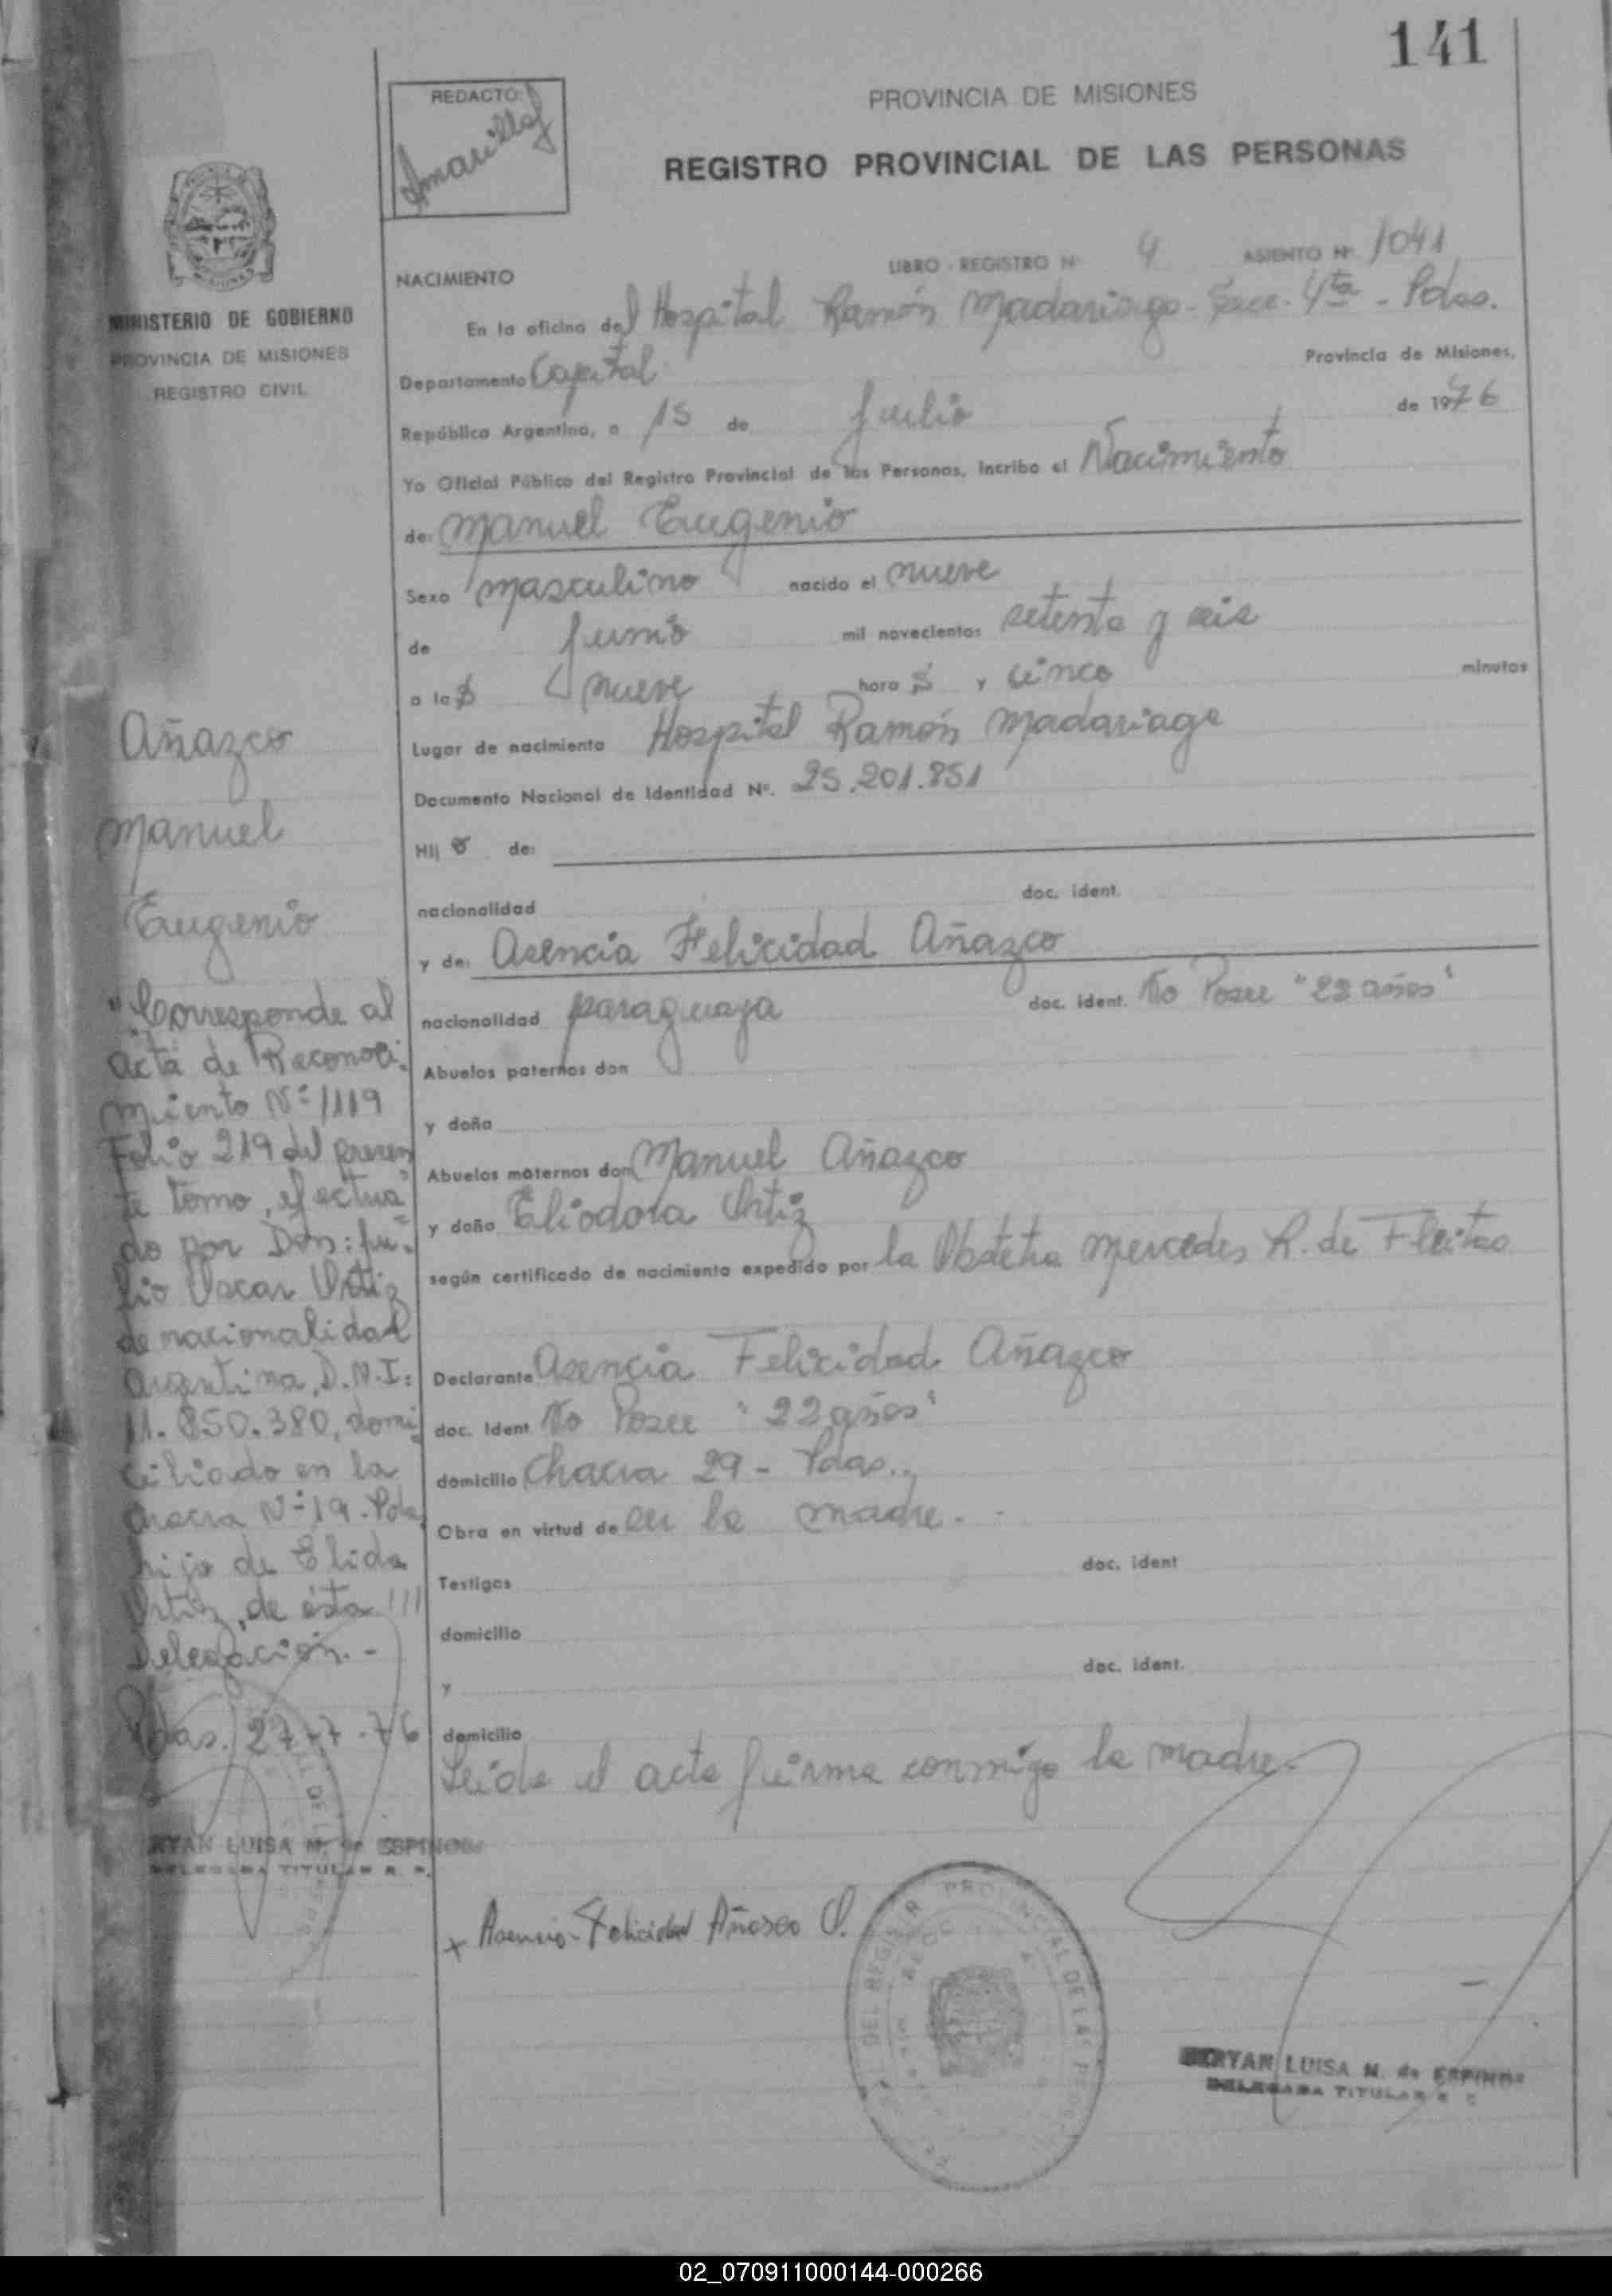 141
REDACTO:
Amarilla
PROVINCIA DE MISIONES
REGISTRO PROVINCIAL DE LAS PERSONAS
MINISTERIO DE GOBIERNO
PROVINCIA DE MISIONES
REGISTRO CIVIL
NACIMIENTO
LIBRO - REGISTRO Nº 4 ASIENTO Nº 1041
En la oficina del Hospital Ramón Madariaga - Secc. 4ta - Pdas.
Departamento Capital Provincia de Misiones,
República Argentina, a 15 de Julio de 1976
Yo Oficial Público del Registro Provincial de las Personas, incribo el Nacimiento
de: Manuel Eugenio
Sexo masculino nacido el nueve
de Junio mil novecientos setenta y seis
a las nueve horas y cinco minutos
Lugar de nacimiento Hospital Ramón Madariaga
Documento Nacional de Identidad Nº. 25.201.851
Hijo de:
nacionalidad doc. ident.
y de: Asencia Felicidad Añazco
nacionalidad paraguaya doc. ident. No Posee "22 años"
Abuelos paternos don
y doña
Abuelos maternos don Manuel Añazco
y doña Eliodora Ortiz
según certificado de nacimiento expedido por la Obstetra Mercedes R. de Fleitas
Declarante Asencia Felicidad Añazco
doc. Ident No Posee "22 años"
domicilio Chacra 29 - Pdas..
Obra en virtud de ser la madre.-
Testigos doc. ident
domicilio
y doc. ident.
domicilio
Leída el acta firma conmigo la madre.
Añazco
Manuel
Eugenio
"Corresponde al
acta de Reconoci-
miento Nº 1119
Folio 219 del presen
te tomo, efectua=
do por Don: Ju-
lio Oscar Ortiz
de nacionalidad
Argentina, D.N.I:
11.850.380, domi
ciliado en la
chacra Nº 19. Pdas
hijo de Elida
Ortiz, de ésta
Delegación.-
Pdas. 27-7-76
RYAN LUISA M. de ESPINOSA
DELEGADA TITULAR R. P.
x Asencia Felicidad Añasco O.
DEL REGISTRO PROVINCIAL DE LAS PERSONAS
RYAN LUISA M. de ESPINOSA
DELEGADA TITULAR R C
02_070911000144-000266